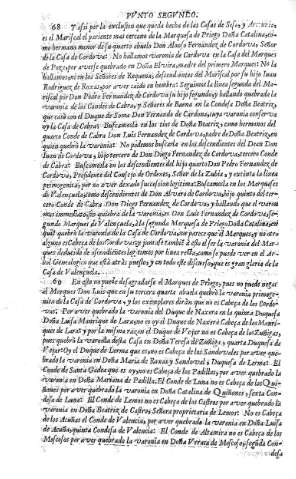 PVNTO SEGVNDO.
68 Y assi por la exclusion que queda hecha de las Casas de Sesa, y
es el Mariscal el pariente mas cercano de la Marquesa de Priego Doña Catalina,
mo hermano menor de su quarto abuelo Don Alonso Fernandez de Cordova, Señor
de la Casa de Cordova. No hallamos varonia de Cordova en la del Marques
de Priego, por averse quebrado en Doña Elvira, madre del primero Marques: No la
hallamos en los Señores de Requena, descendientes del Mariscal por su hijo Juan
Rodriguez de Roxas por aver caido en hembra: Seguimos la linea segunda del Ma-
riscal por Don Pedro Fernandez de Cordova su hijo segundo, y hallando quebrada la
varonia de los Condes de Cabra, y Señores de Baena en la Condesa Doña Beatriz,
que casò con el Duque de Soma Don Fernando de Cardona, cuya varonia conserva
oy la Casa de Cabra: Buscamosla en los tios de Doña Beatriz, como hermanos del
quarto Conde de Cabra Don Luis Fernandez de Cordova, padre de Doña Beatriz, en
quien quebrò la varonia: No pudimos hallarla en los descendientes del Deàn Don
Juan de Cordova, hijo tercero de Don Diego Fernandez de Cordova, tercero Conde de
Cabra: Buscamosla en los descendientes del hijo quarto Don Pedro Fernandez de
Cordova, Presidente del Consejo de Ordenes, Señor de la Zubia, y extinta la linea
primogenita, por no aver dexado sucession legitima: Buscamosla en los Marqueses
de Valençuela, como descendientes de Don Alvaro de Cordova, hijo quinto del ter-
cero Conde de Cabra Don Diego Fernandez de Cordova, y hallando que el varon
mas inmediato à la quiebra de la varonia es Don Luis Fernandez de Cordova, se-
gundo Marques de Valençuela, à la segunda Marquesa de Priego Doña Catalina, en
quien quebrò la varonia de la Casa de Cordova, nos parece que el Marques, y no otro
alguno es Cabeça de los Cordovas, y juzgando tambien à esso el ser la varonia del Mar-
ques deducida de ascendientes legitimos por linea recta, como se puede ver en el Ar-
bol Genealogico que està atràs puesto, y en todo este discurso, que es gran gloria de la
Casa de Valençuela.
69 En esto no puede dezagradarse el Marques de Priego, pues no puede negar
al Marques Don Luis que en su tercera quarta abuela quebrò la varonia primoge-
nita de la Casa de Cordova, y los exemplares diràn que no es Cabeça de los Cordo-
vas. Por averse quebrado la varonia del Duque de Naxera en la quinta Duquesa
Doña Luisa Manrique de Lara, no es oy el Duque de Naxera Cabeça de los Manri-
ques de Lara; y por la misma razon el Duque de Vejar no es Cabeça de los Zuñigas,
pues quebrò la varonia desta Casa en Doña Teresa de Zuñiga, y quarta Duquesa de
Vejar: Oy el Duque de Lerma que es no es Cabeça de los Sandovales por averse que-
brado la varonia en Doña Maria de Roxas y Sandoval, y Duquesa de Lerma: El
Conde de Santa Gadea que es oy no es Cabeça de los Padillas, por averse quebrado la
varonia en Doña Mariana de Padilla. El Conde de Luna no es Cabeça de los Qui-
ñones por averse quebrado la varonia en Doña Catalina de Quiñones, sexta Con-
desa de Luna: El Conde de Lemos no es Cabeça de los Castros por averse quebrado la
varonia en Doña Beatriz de Castro, Señora proprietaria de Lemos: No es Cabeça
de los Acuñas el Conde de Valencia, por averse quebrado la varonia en Doña Luisa
de Acuña, quinta Condesa de Valencia: El Conde de Altamira no es Cabeça de los
Moscosos por averse quebrado la varonia en Doña Vrraca de Moscoso, segunda Con-
desa